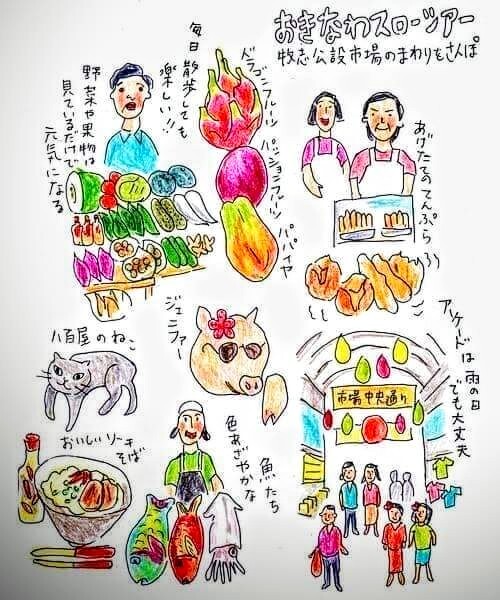 おきなわスローツアー
牧志公設市場のまわりをさんぽ
毎日散歩しても
楽しい!!
野菜や果物は
見ているだけで
元気になる
ドラゴンフルーツ
パッションフルーツ
パパイヤ
あげたてのてんぷら
ジェニファー
アーケードは雨の日
でも大丈夫
市場中央通り
八百屋のねこ
色あざやかな
魚たち
おいしいソーキ
そば